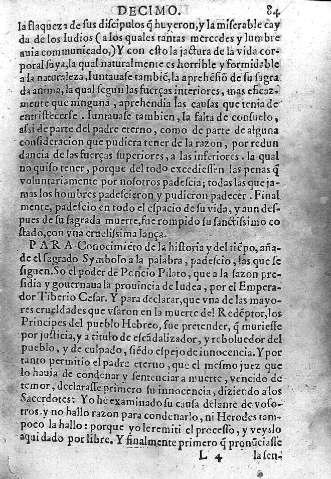 DECIMO. 84
la flaqueza de sus discipulos q̃ huyeron, y la miserable cay
da de los Iudios (a los quales tantas mercedes y lumbre
auia communicado,) Y con esto la jactura de la vida cor-
poral suya, la qual naturalmente es horrible y formidable
a la naturaleza. Iuntauase tambiẽ, la aprehẽsiõ de su sagra
da anima, la qual segun las fuerças interiores, mas eficaz-
mente que ninguna, aprehendia las causas que tenia de
entristecerse. Iuntauase tambien, la falta de consuelo,
assi de parte del padre eterno, como de parte de alguna
consideracion que pudiera tener de la razon, por redun
dancia de las fuerças superiores, a las inferiores. la qual
no quiso tener, porque del todo excediessen las penas q̃
voluntariamente por nosotros padescia; todas las que ja-
mas los hombres padescieron y pudieron padecer. Final
mente, padescio en todo el espacio de su vida, y aun des-
pues de su sagrada muerte, fue rompido su sanctissimo co
stado, con vna cruelissima lança.
PARA Conocimiẽto de la historia y del tiẽpo, aña-
de el sagrado Symbolo a la palabra, padescio, las que se
siguen. So el poder de Poncio Pilato, que a la sazon pre-
sidia y gouernaua la prouincia de Iudea, por el Empera-
dor Tiberio Cesar. Y para declarar, que vna de las mayo-
res crueldades que vsaron en la muerte del Redẽptor, los
Principes del pueblo Hebreo, fue pretender, q̃ muriesse
por justicia, y a titulo de escãdalizador, y reboluedor del
pueblo, y de culpado, siẽdo espejo de innocencia. Y por
tanto permitio el padre eterno, que el mesmo juez que
lo hauia de condenar y sentenciar a muerte, vencido de
temor, declarasse primero su innocencia, diziendo a los
Sacerdotes: Yo he examinado su causa delante de voso-
tros. y no hallo razon para condenarlo, ni Herodes tam-
poco la hallo: porque yo le remiti el processo, y veyslo
aqui dado por libre. Y finalmente primero q̃ pronũciasse
L 4 la sen-